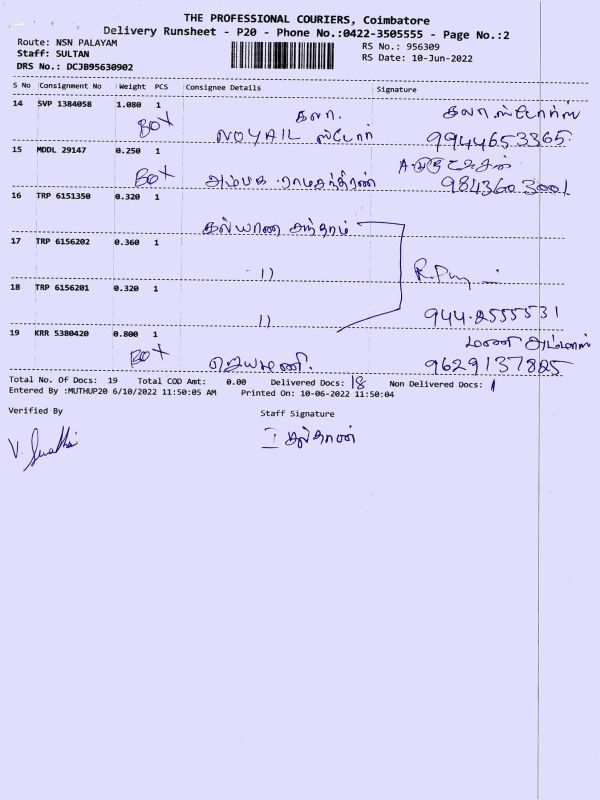 THE PROFESSIONAL COURIERS, Coimbatore
Delivery Runsheet - P20 - Phone No.:0422-3505555 - Page No.:2
Route: NSN PALAYAM
RS No.: 956309
Staff: SULTAN
RS Date: 10-Jun-2022
DRS No.: DCJB95630902
S No Consignment No Weight PCS Consignee Details Signature
14 SVP 1384058 1.080 1 கலா. கலா ஸ்டோர்ஸ்
BOX NOYAIL ஸ்டோர் 9944653365.
15 MDDL 29147 0.250 1
BOX அம்பக ராமசந்திரன் 984360.3001.
16 TRP 6151350 0.320 1
கல்யாண
17 TRP 6156202 0.360 1
11
18 TRP 6156201 0.320 1
11 944.2555531
19 KRR 5380420 0.800 1 மணி அம்மாள்
BOX ஜெயமணி. 9629137825
Total No. Of Docs: 19 Total COD Amt: 0.00 Delivered Docs: 18 Non Delivered Docs: 1
Entered By :MUTHUP20 6/10/2022 11:50:05 AM Printed On: 10-06-2022 11:50:04
Verified By Staff Signature